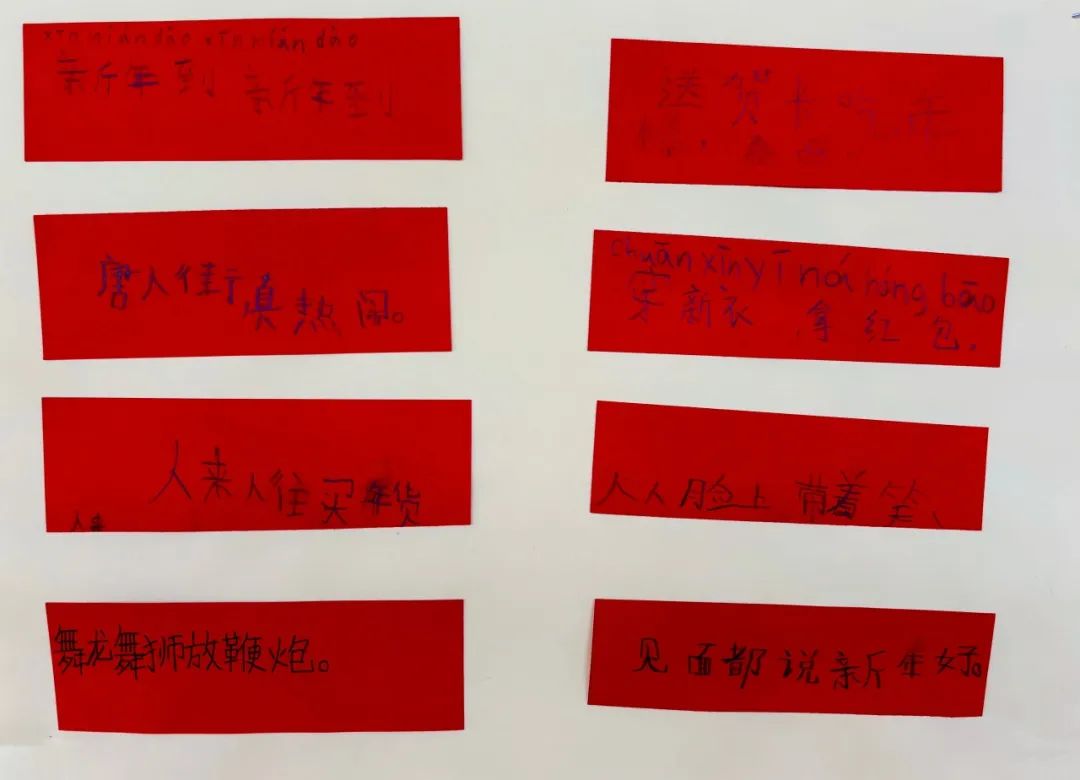 xīn nián dào xīn nián dào
新年到 新年到
唐人街真热闹。
人来人往买年货
人来
舞龙舞狮放鞭炮。
送贺卡吃年
chuān xīn yī ná hóng bāo
穿新衣 拿红包,
人人脸上带着笑、
见面都说新年好。